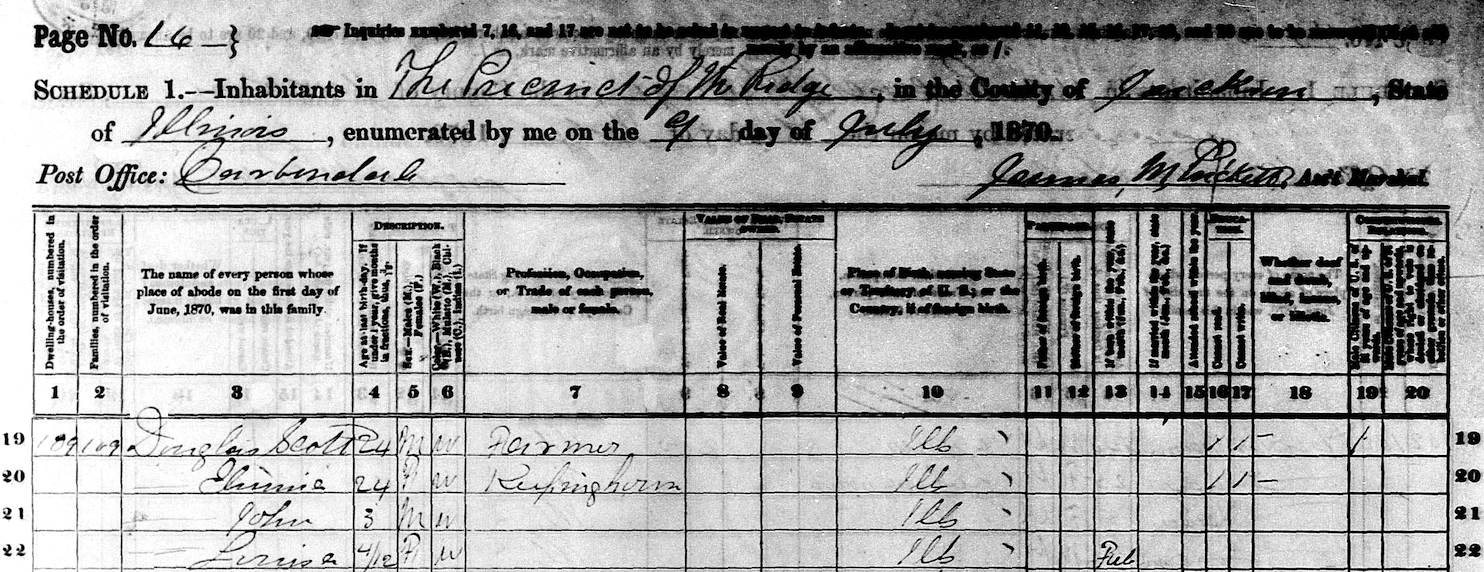 Page No. 16
Inquiries numbered 7, 16, and 17 are not to be asked in respect to infants.
merely by an affirmative mark, as /.
SCHEDULE 1.—Inhabitants in The Precinct of the Ridge, in the County of Jackson, State
of Illinois, enumerated by me on the 9 day of July, 1870.
Post Office: Carbondale James M Pickett, Ass't Marshal.
Dwelling-houses, numbered in the order of visitation.
Families, numbered in the order of visitation.
The name of every person whose place of abode on the first day of June, 1870, was in this family.
DESCRIPTION.
Age at last birth-day. If under 1 year, give months in fractions, thus, 3/12.
Sex.—Males (M.), Females (F.)
Color.—White (W.), Black (B.), Mulatto (M.), Chinese (C.), Indian (I.)
Profession, Occupation, or Trade of each person, male or female.
VALUE OF REAL ESTATE OWNED.
Value of Real Estate.
Value of Personal Estate.
Place of Birth, naming State or Territory of U. S.; or the Country, if of foreign birth.
PARENTAGE.
Father of foreign birth.
Mother of foreign birth.
If born within the year, state month (Jan., Feb., &c.)
If married within the year, state month (Jan., Feb., &c.)
Attended school within the year.
EDUCATION.
Cannot read.
Cannot write.
Whether deaf and dumb, blind, insane, or idiotic.
1 2 3 4 5 6 7 8 9 10 11 12 13 14 15 16 17 18 19 20
19 109 109 Douglas Scott 24 M W Farmer Ills 1 1 1 19
20 24 F W Keeping house Ills 1 1 20
21 John 3 M W Ills 21
22 Louisa 4/12 F W Ills Feb 22